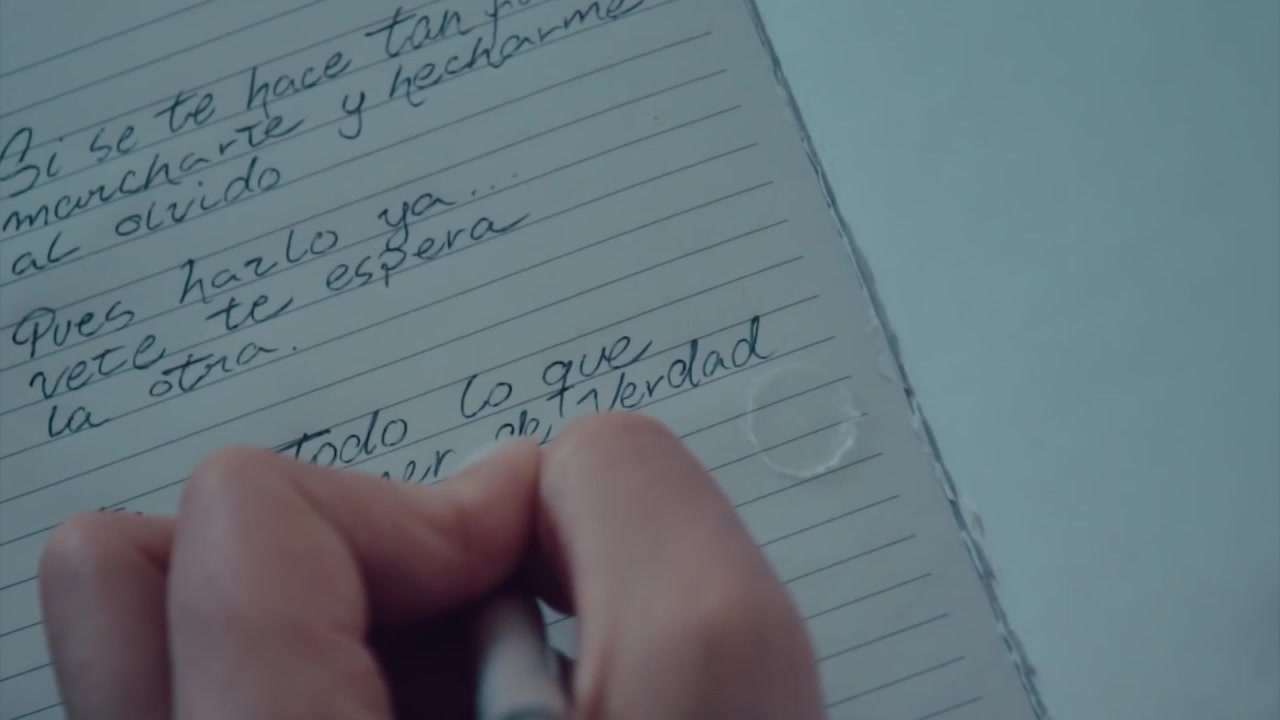 Si se te hace tan
marcharte y hecharme
al olvido
Pues hazlo ya...
vete te espera
la otra.
todo lo que
de Verdad